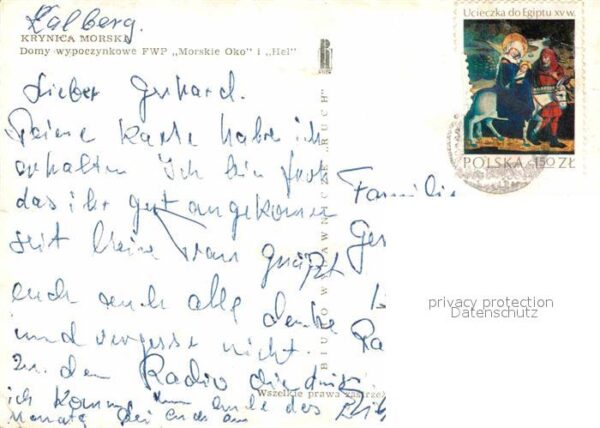 Kalberg.
KRYNICA MORSKA
Domy wypoczynkowe FWP „Morskie Oko” i „Hel”
Ucieczka do Egiptu XV w.
POLSKA 1,50 ZŁ
Lieber Gerhard.
Deine Karte habe ich
erhalten Ich bin froh
das ihr gut angekommen
seit meine Frau grüßt
euch auch alle denke
und vergesse nicht.
zu dem Radio die
ich komme ende des
Monats bei euch an
BIURO WYDAWNICZE „RUCH”
Familie
Ger
privacy protection
Datenschutz
Wszelkie prawa zastrzeż